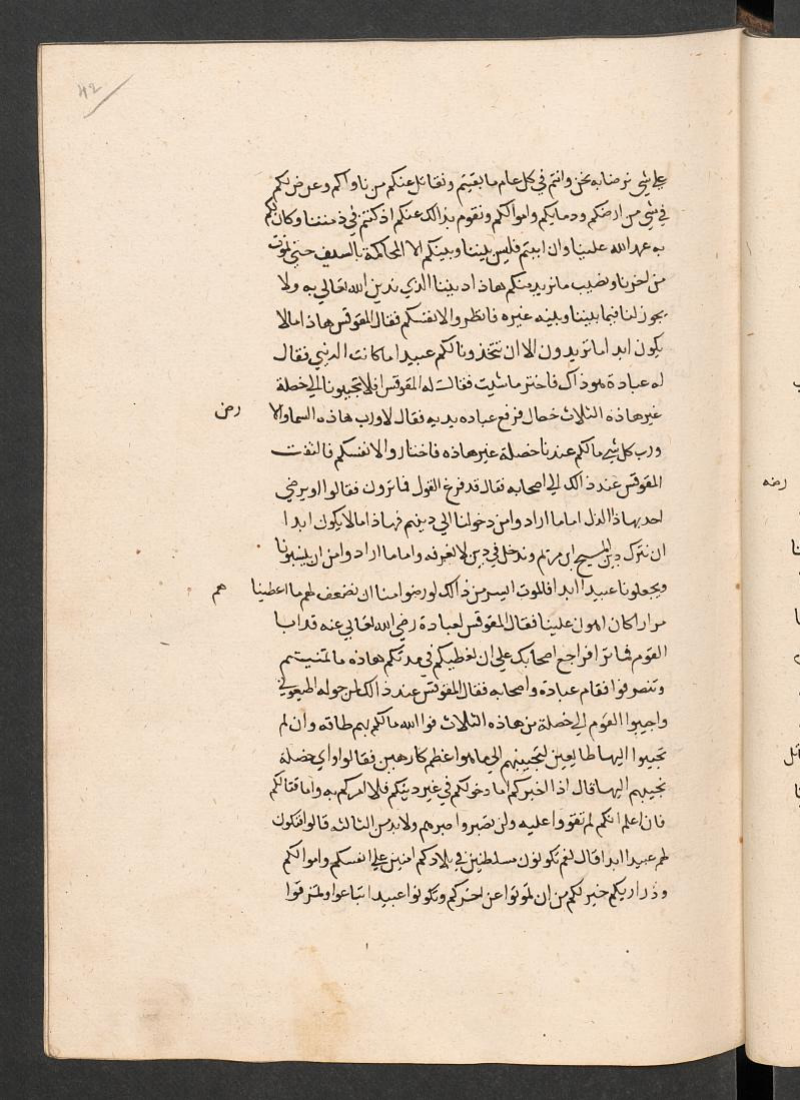 42
على شي نرضا به نحن وانتم في كل عام ما بقيتم ونقاتل عنكم من ناواكم وعرض لكم
في شي من ارضكم ودمايكم واموالكم ونقوم بذالك عنكم اذ كنتم في ذمتنا وكان لكم
به عهد الله علينا وان ابيتم فليس بيننا وبينكم الا المحاكمة بالسيف حتى نموت
من اخرنا ونصيب ما نريد منكم هاذا ديننا الذي ندين الله تعالى به ولا
يجوز لنا فيما بيننا وبينه غيره فانظروا لانفسكم فقال المقوقس هاذا ما لا
يكون ابدا ما تريدون الا ان تتخذونا لكم عبيدا ما كانت الدنيي فقال
له عبادة هو ذاك فاختر ما شيت فقال له المقوقس افلا تجيبونا الى خصلة
غير هاذه الثلاث خصال فرفع عباده يديه فقال لا ورب هاذه السما والا رض
ورب كل شي ما لكم عندنا خصلة غير هاذه فاختاروا لانفسكم فالتفت
المقوقس عند ذالك الى اصحابه فقال قد فرغ القول فما ترون فقالوا او يرضى
احد بهاذا الذل اما ما ارادوا من دخولنا الى دينهم فهاذا ما لا يكون ابدا
ان نترك دين المسيح ابن مريم وندخل في دين لا نعرفه واما ما ارادوا من ان يسبونا
ويجعلونا عبيدا ابدا فالموت ايسر من ذالك لو رضوا منا ان نضعف لهم ما اعطينا هم
مرارا كان اهون علينا فقال المقوقس لعبادة رضي الله تعالى عنه قد ابا
القوم فما ترا فراجع اصحابك على ان نعطيكم في مدتكم هاذه ما تمنيتم
وتنصرفوا فقام عبادة واصحابه فقال المقوقس عند ذالك لمن حوله اطيعوني
واجيبوا القوم الى خصلة من هاذه الثلاث فوالله ما لكم بهم طاقه وان لم
تجيبوا اليها طايعين لتجيبنهم الى ما هو اعظم كارهين فقالوا واي خصلة
نجيبهم اليها قال اذا اخبركم اما دخولكم في غير دينكم فلا امركم به واما قتالكم
فان اعلم انكم لم تقووا عليه ولن تصبروا صبرهم ولا بد من الثالثه قالوا فنكون
لهم عبيدا ابدا قال نعم تكونون مسلطين في بلادكم امنين على انفسكم واموالكم
وذراريكم خير لكم من ان تموتوا عن اخركم وتكونوا عبيدا تباعوا وتمزقوا
رضه